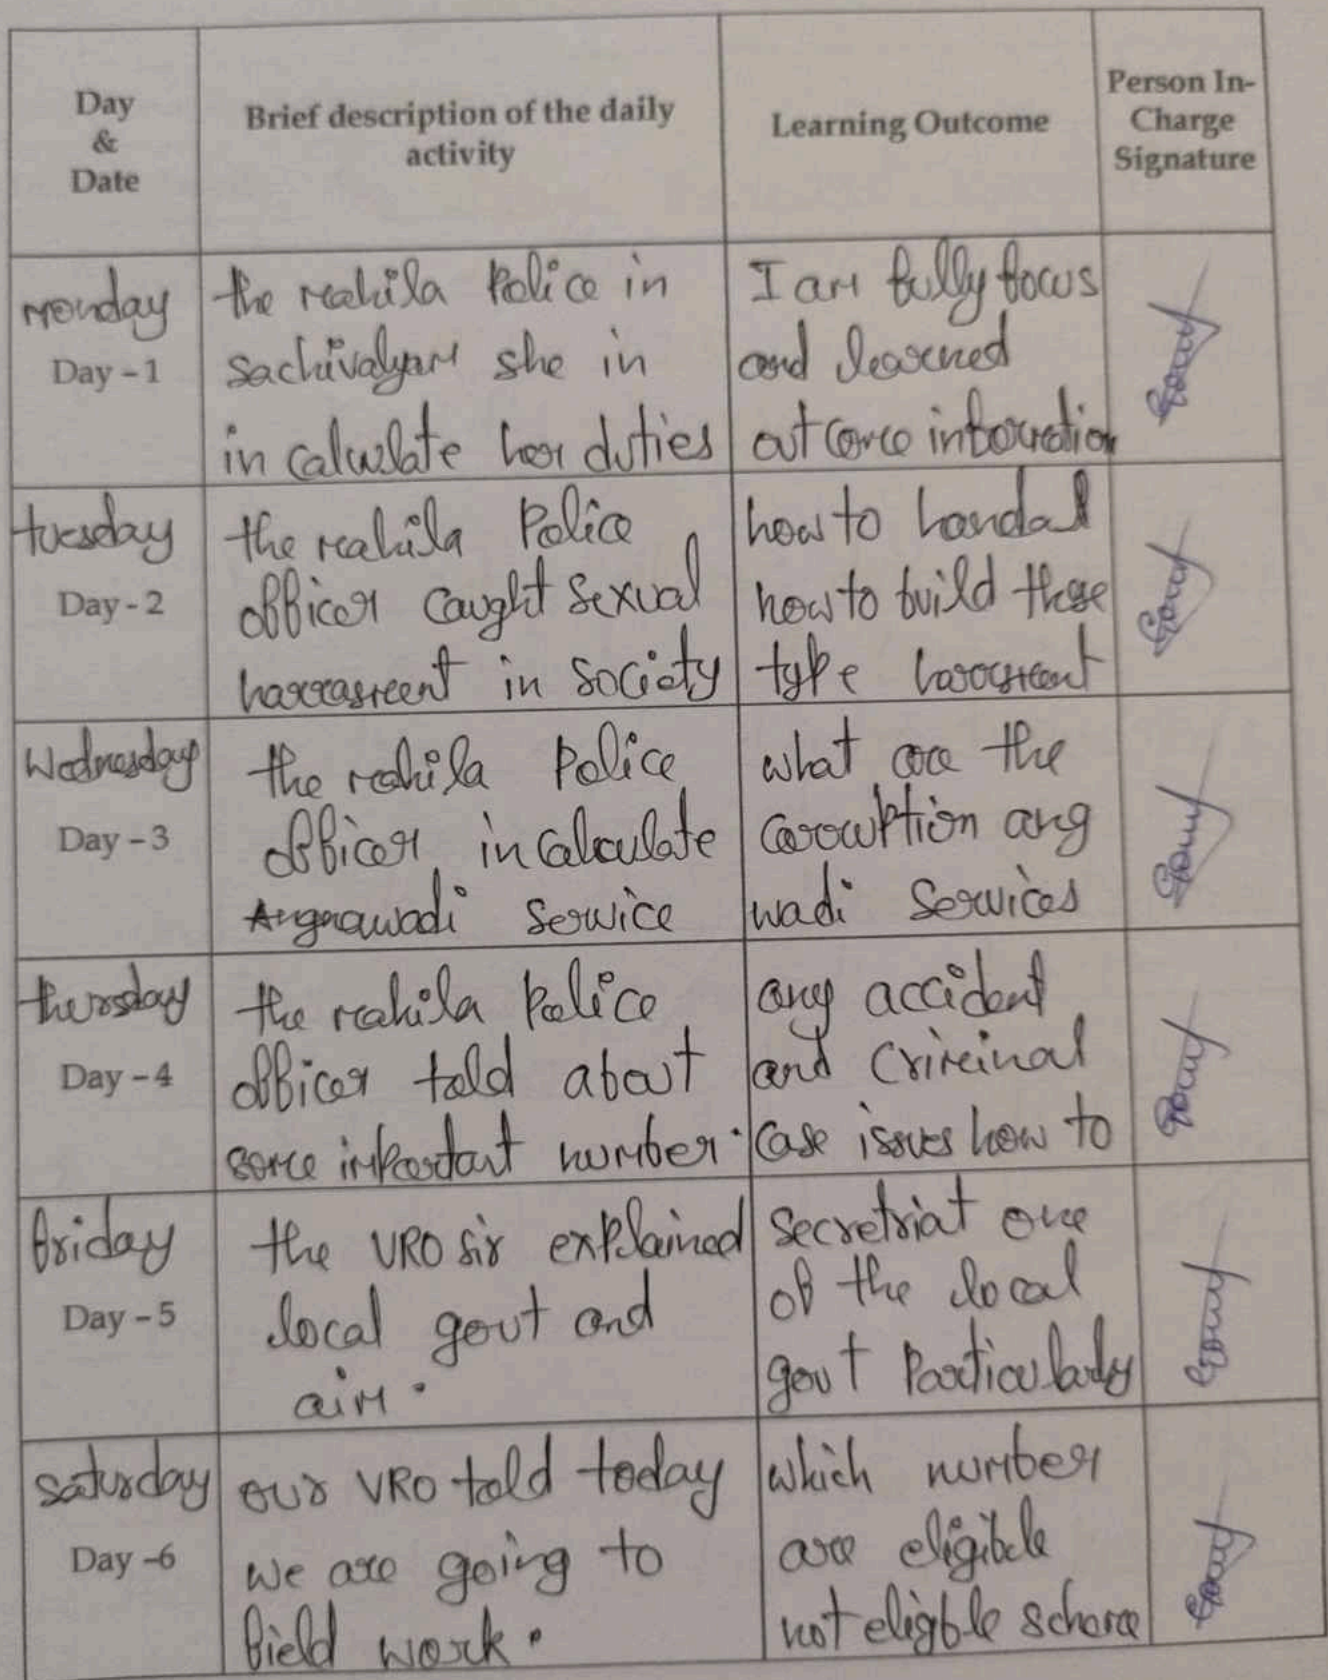 Day
&
Date
Brief description of the daily
activity
Learning Outcome
Person In-
Charge
Signature
Monday
Day - 1
the mahila Police in
sachivalyam she in
in calculate her duties
I am fully focus
and learned
out come information
tuesday
Day - 2
the mahila Police
officer caught sexual
harrasment in society
how to handal
how to build these
type harrasment
Wednesday
Day - 3
the mahila Police
officer in calculate
service
what are the
corruption ang
wadi services
thursday
Day - 4
the mahila Police
officer told about
some important number.
any accident
and criminal
case issues how to
friday
Day - 5
the VRO sir explained
local govt and
aim.
secretriat one
of the local
govt Particularly
saturday
Day -6
our VRO told today
we are going to
field work.
which number
are eligible
not eligble scheme